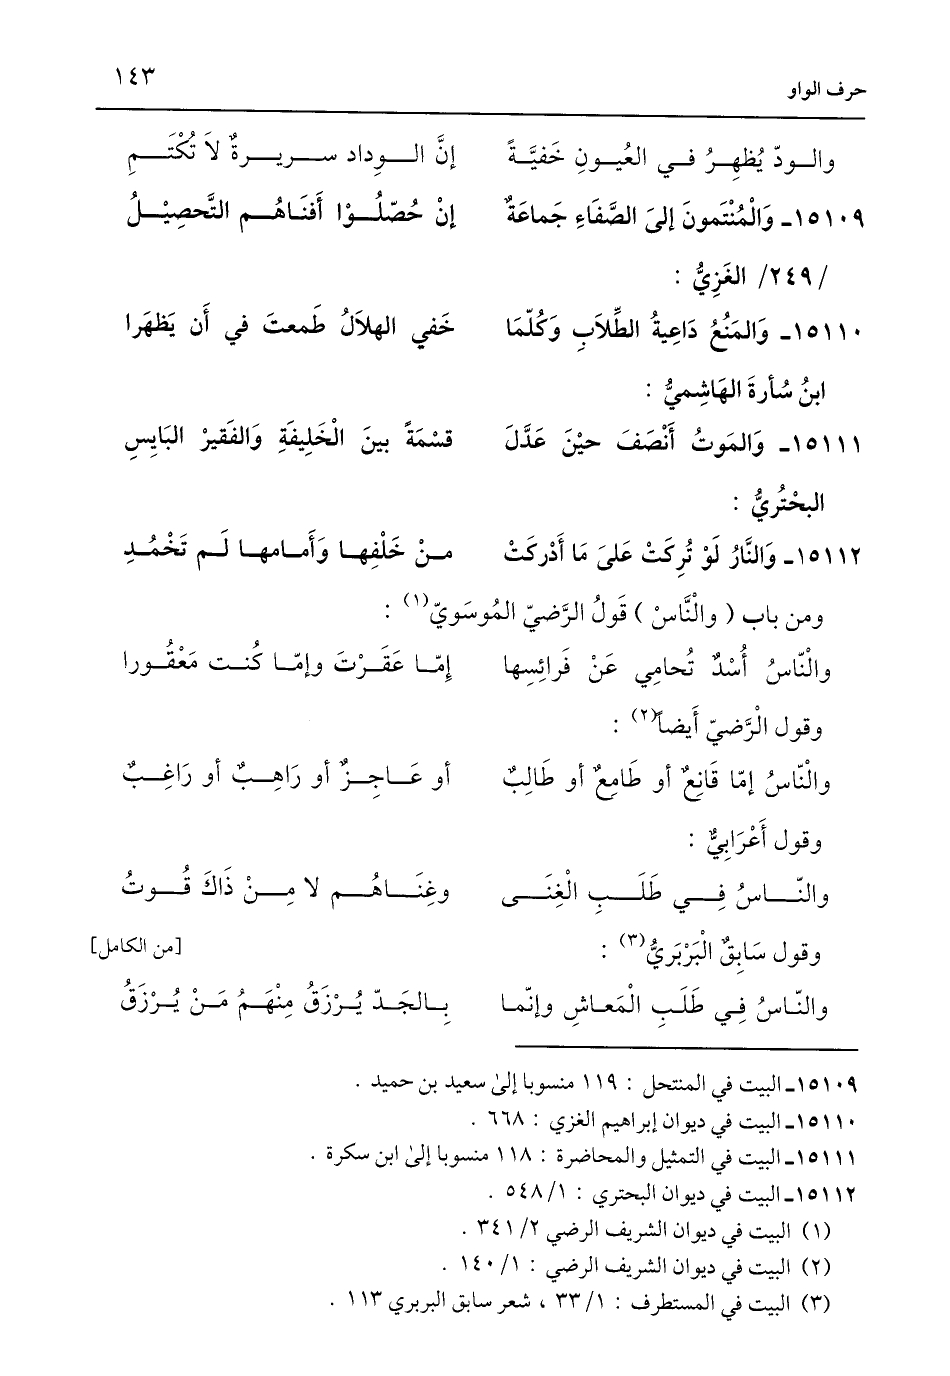 حرف الواو ١٤٣
والودّ يُظهِرُ في العُيونِ خَفيَّةً إنَّ الوداد سريرةٌ لاَ تُكْتَمِ
١٥١٠٩ـ وَالْمُنْتَمونَ إلىَ الصَّفَاءِ جَماعَةٌ إنْ حُصّلُوْا أَفنَاهُم التَّحصِيْلُ
/٢٤٩/ الغَزِيُّ :
١٥١١٠ـ وَالمَنْعُ دَاعِيةُ الطِّلاَبِ وَكُلّمَا خَفي الهلاَلُ طَمعتَ في أَن يَظهَرا
ابنُ سُأرةَ الهَاشِميُّ :
١٥١١١ـ وَالمَوتُ أَنْصَفَ حيْنَ عَدَّلَ قسْمَةً بينَ الْخَلِيفَةِ وَالفَقيرْ البَايسِ
البحْتُريُّ :
١٥١١٢ـ وَالنَّارُ لَوْ تُرِكَتْ عَلىَ مَا أَدْركَتْ منْ خَلْفِها وَأَمامها لَم تَخْمُدِ
ومن باب ( والْنَّاسْ ) قَولُ الرَّضيّ المُوسَويّ(١) :
والْنّاسُ أُسْدٌ تُحامِي عَنْ فَرائِسِها إمّا عَقَرْتَ وإمّا كُنت مَعْقُورا
وقول الْرَّضيّ أَيضاً(٢) :
والْنّاسُ إمّا قَانِعٌ أو طَامِعٌ أو طَالِبٌ أو عَاجِزٌ أو رَاهِبٌ أو رَاغِبٌ
وقول أَعْرَابِيٌّ :
والنّاسُ فِي طَلَبِ الْغِنَى وغِنَاهُم لا مِنْ ذَاكَ قُوتُ
وقول سَابِقٌ الْبَرْبَريُّ(٣) : [من الكامل]
والنّاسُ فِي طَلَبِ الْمَعاشِ وإنّما بِالجَدّ يُرْزَقُ مِنْهَمُ مَنْ يُرْزَقُ
١٥١٠٩ـ البيت في المنتحل : ١١٩ منسوبا إلىٰ سعيد بن حميد .
١٥١١٠ـ البيت في ديوان إبراهيم الغزي : ٦٦٨ .
١٥١١١ـ البيت في التمثيل والمحاضرة : ١١٨ منسوبا إلىٰ ابن سكرة .
١٥١١٢ـ البيت في ديوان البحتري : ١/ ٥٤٨ .
(١) البيت في ديوان الشريف الرضي ٢/ ٣٤١ .
(٢) البيت في ديوان الشريف الرضي : ١/ ١٤٠ .
(٣) البيت في المستطرف : ١/ ٣٣ ، شعر سابق البربري ١١٣ .